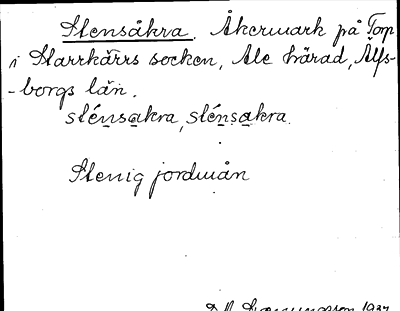 Stensåkra. Åkermark på Torp
i Starrkärrs socken, Ale härad, Älfs-
-borgs län.
sténsakra, sténsakra.
Stenig jordmån